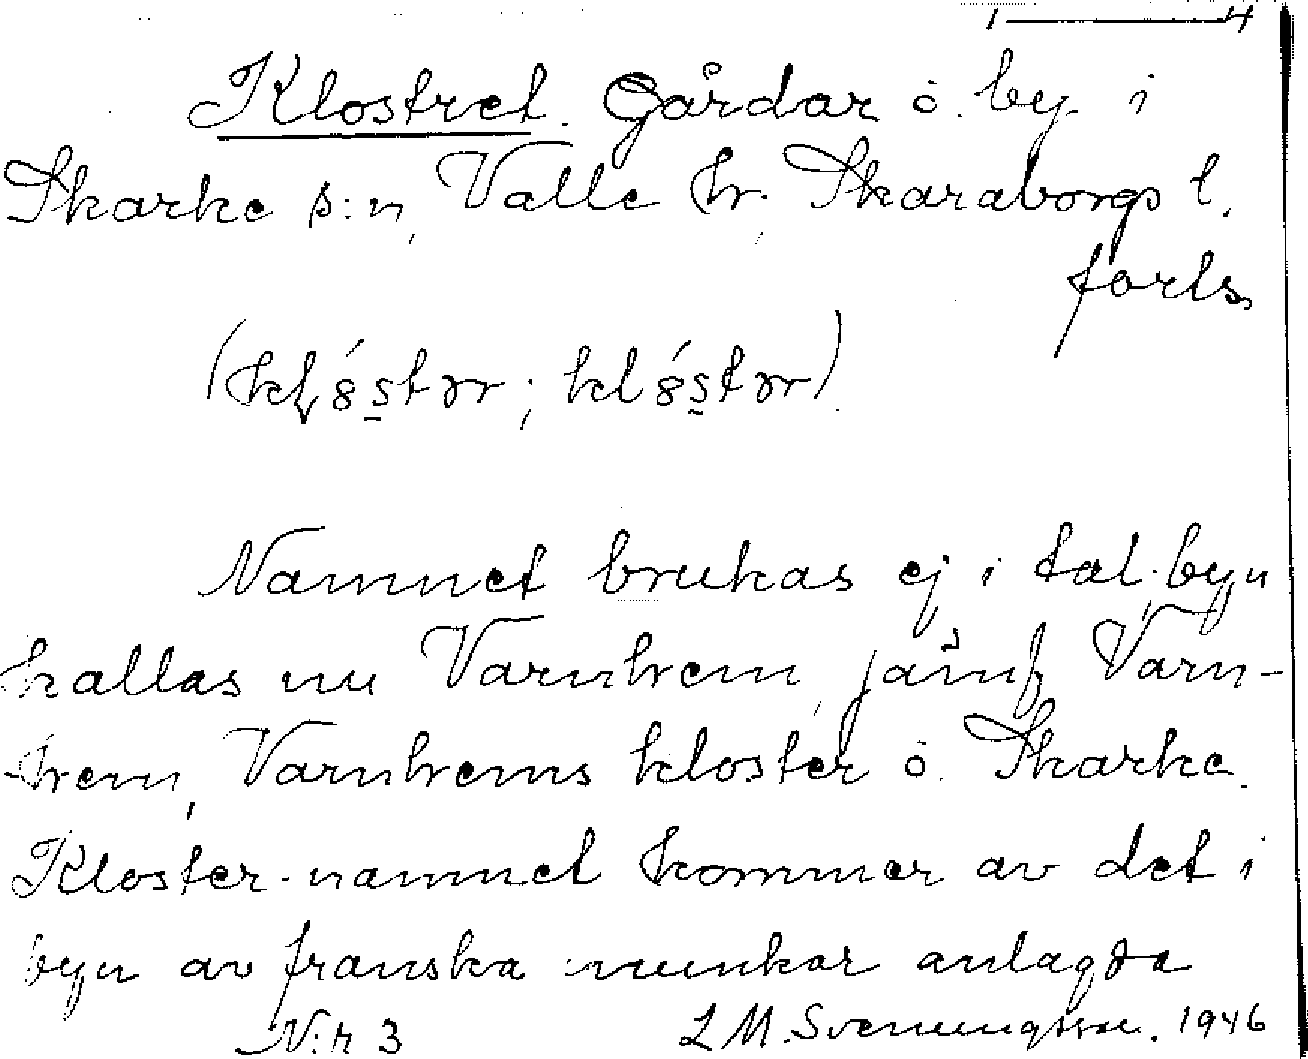 1 — 4
Klostret. Gårdar o. by. i
Skarke s:n, Valle hr. Skaraborgs l.
forts.
Namnet brukas ej i tal, byn
kallas nu Varnhem, jämf Varn-
-hem, Varnhems kloster o. Skarke.
Kloster-namnet kommer av det i
byn av franska munkar anlagda
N:r 3 L M. Svenungsson. 1946